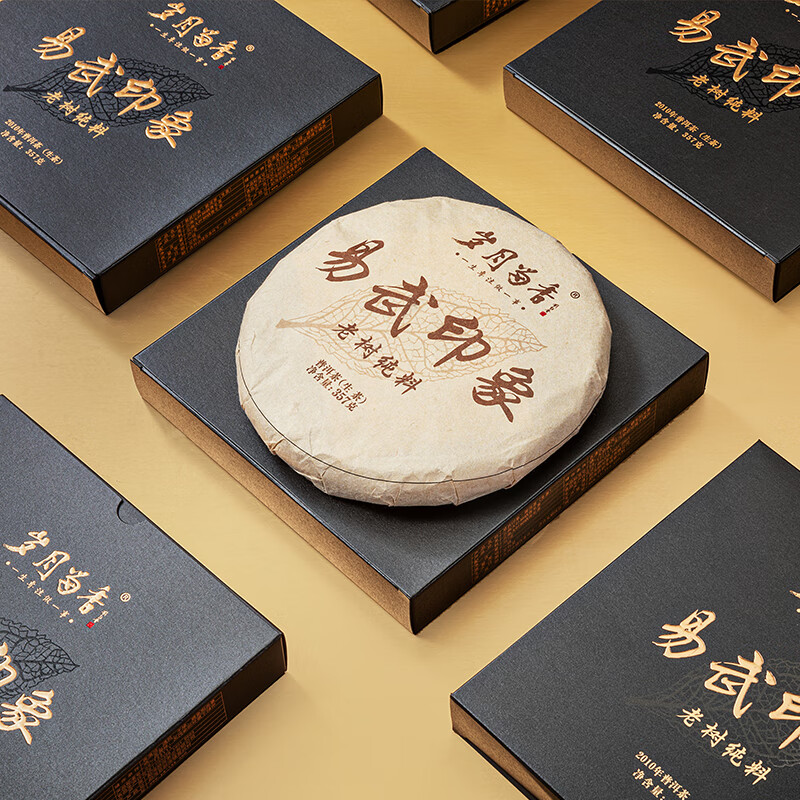 岁月留香®
·一生专注做一事·
易武印象
老树纯料
2010年普洱茶(生茶)
净含量:357克
易武印
老树纯料
2010年普洱茶(生茶)
净含量:357克
岁月留香®
·一生专注做一事·
易武印象
老树纯料
普洱茶(生茶)
净含量:357克
岁月留香®
·一生专注做一事·
象
易武印
老树纯料
2010年普洱茶
净含量: